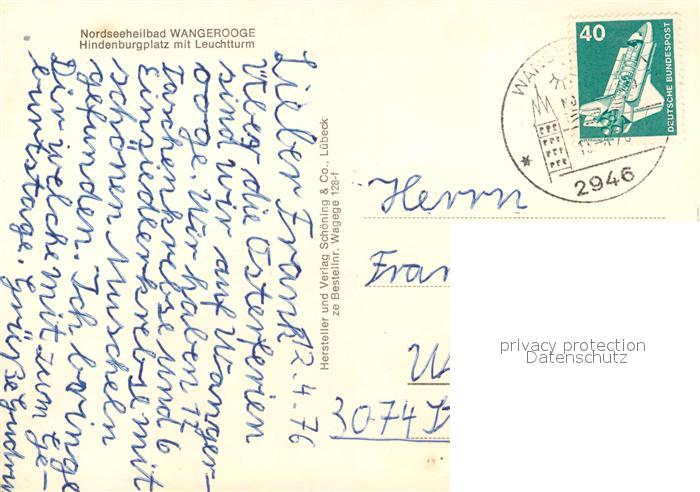 Nordseeheilbad WANGEROOGE
Hindenburgplatz mit Leuchtturm
12.4.76
Lieber Frank
Über die Osterferien
sind wir auf Wanger-
ooge. Wir haben 17
Taschenkrebse und 6
Einsiedlerkrebse mit
schönen Muscheln
gefunden. Ich bringe
Dir welche mit zum Ge-
burtstage. Grüße Gudrun
Hersteller und Verlag Schöning & Co., Lübeck
ze Bestellnr. Wagege 128-f
40
DEUTSCHE BUNDESPOST
2946
Herrn
Fran
3074
privacy protection
Datenschutz